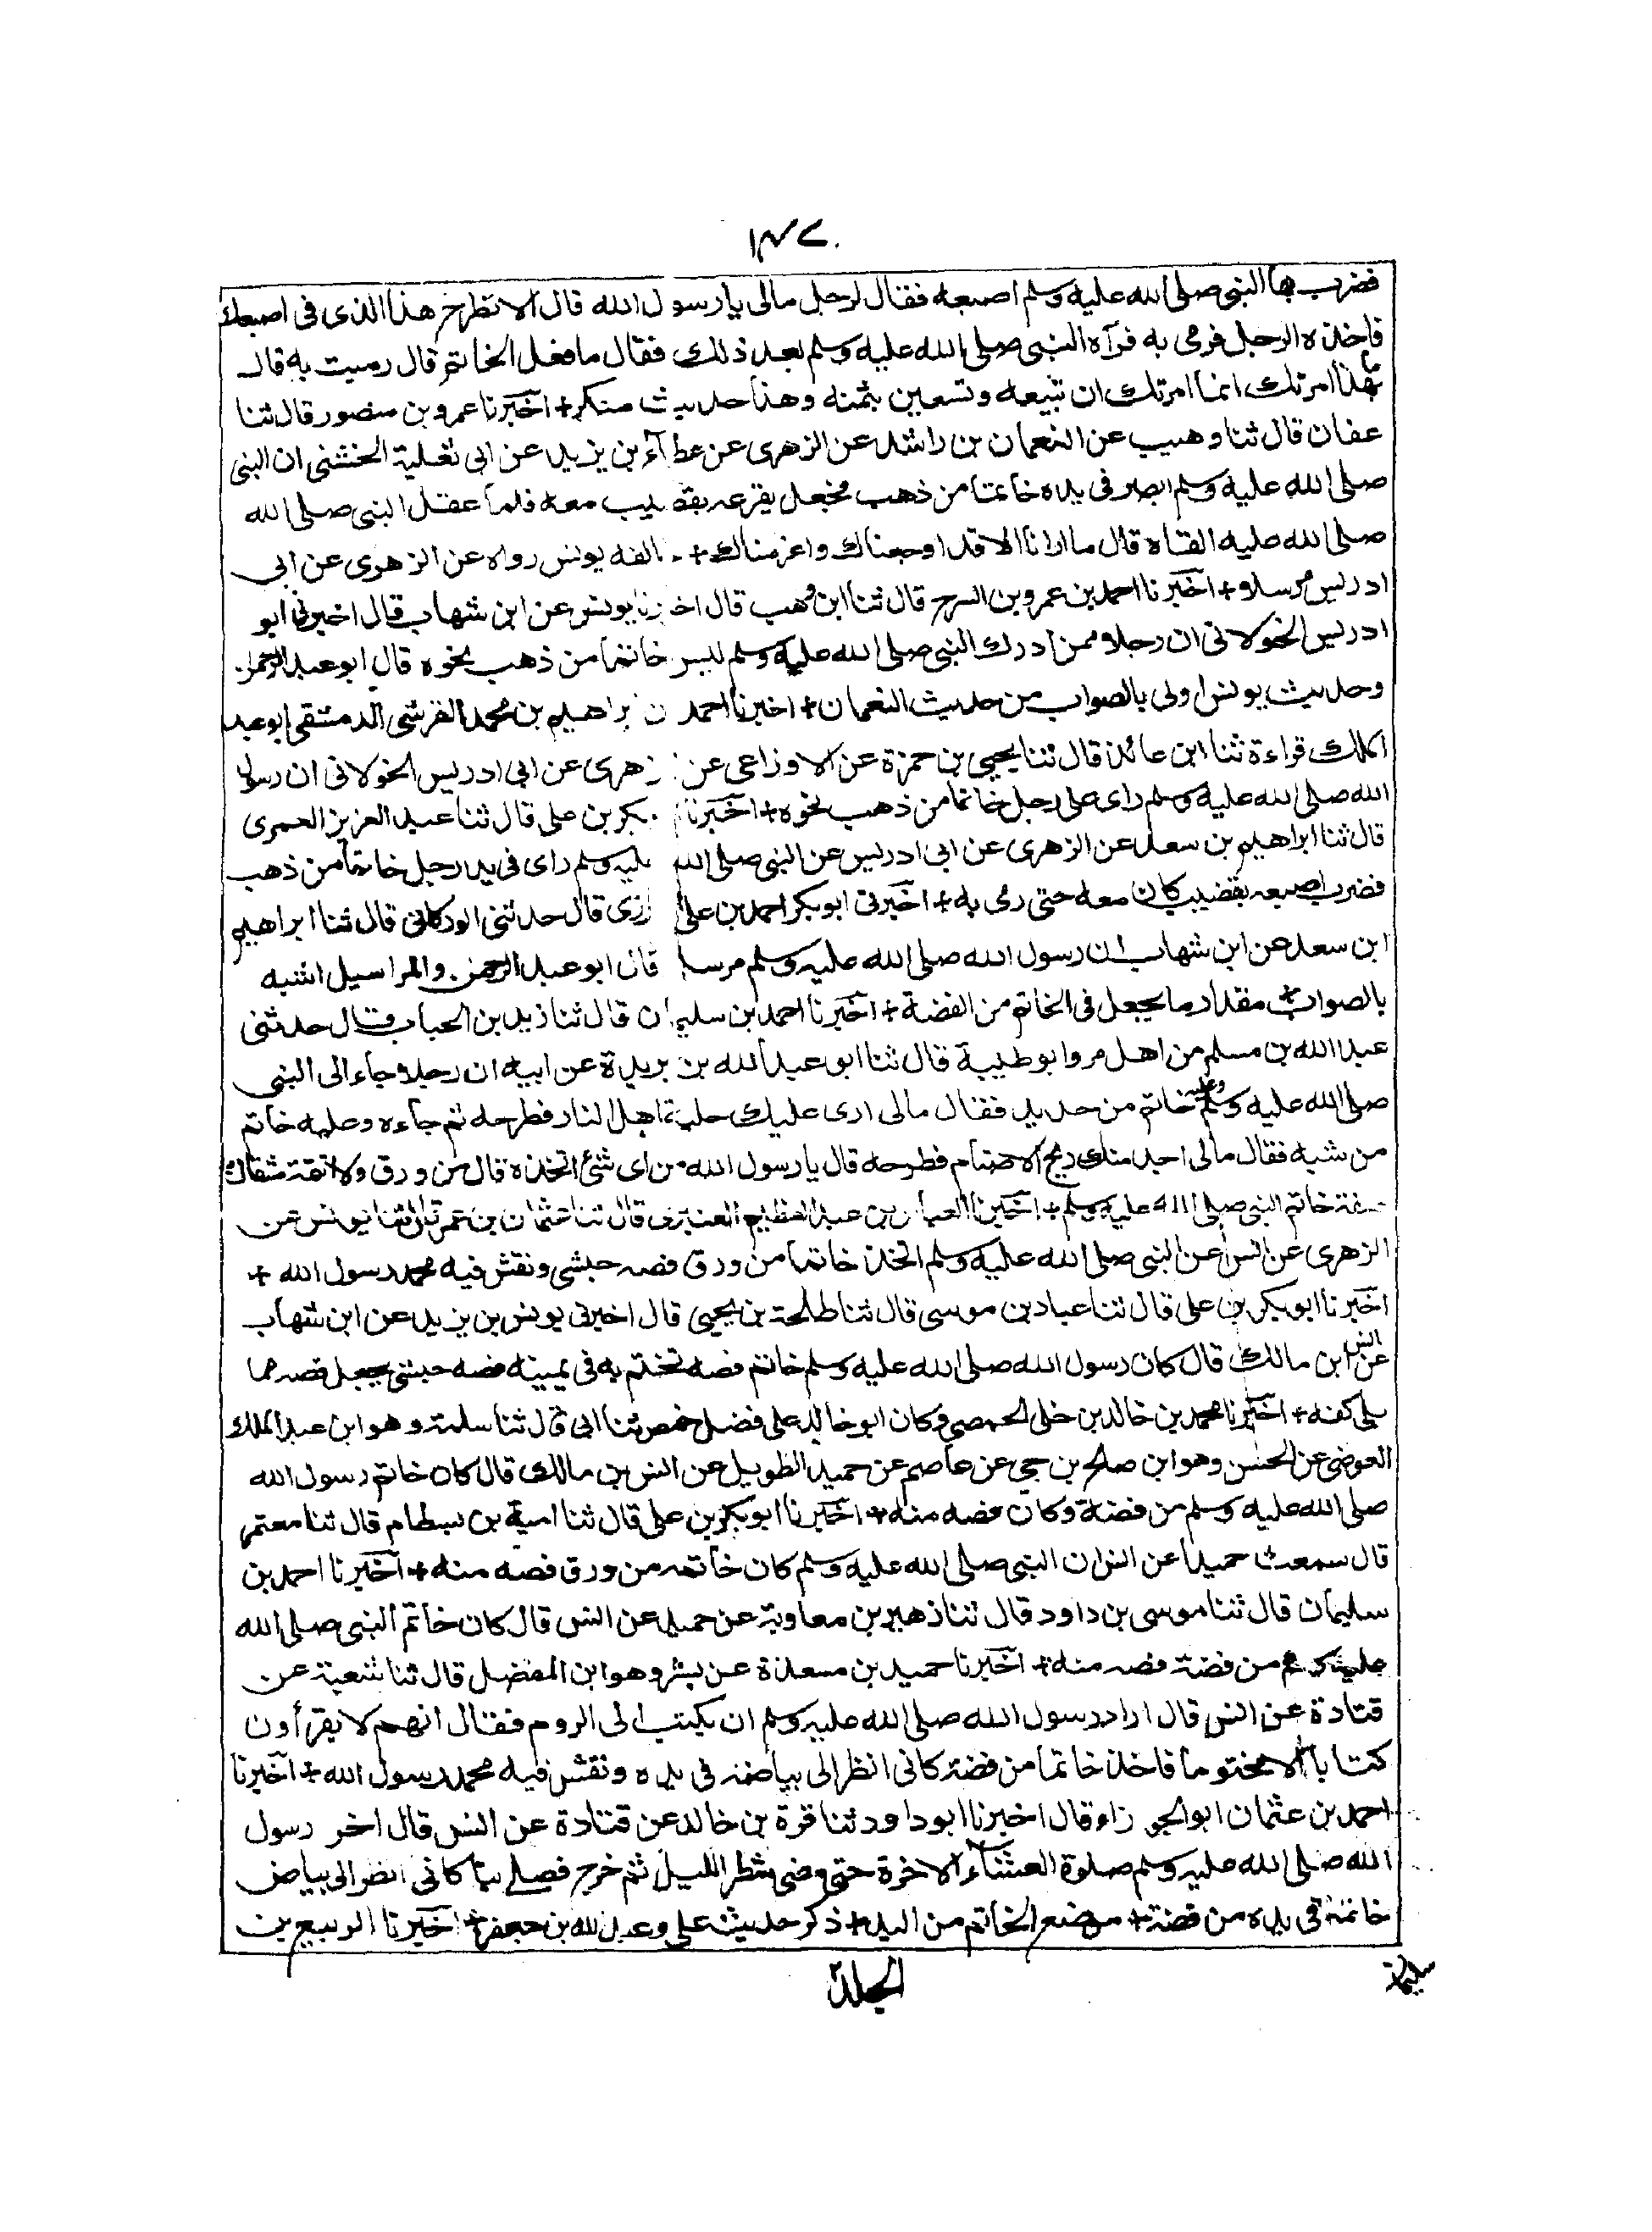 فضرب بها النبى صلى الله عليه وسلم اصبعه فقال لرجل مالى يا رسول الله قال الا تطرح هذا الذى فى اصبعك
فاخذه الرجل فرمى به فرآه النبى صلى الله عليه وسلم بعد ذلك فقال ما فعل الخاتم قال رميت به قال
ما بهذا امرتك انما امرتك ان تبيعه وتستعين بثمنه وهذا حديث منكر + اخبرنا عمرو بن منصور قال ثنا
عفان قال ثنا وهيب عن النعمان بن راشد عن الزهرى عن عطاء بن يزيد عن ابى ثعلبة الخشنى ان النبى
صلى الله عليه وسلم ابصر فى يده خاتما من ذهب فجعل يقرعه بقضيب معه فلما غفل النبى صلى الله
صلى الله عليه القاه قال ما ارانا الا قد اوجعناك واغرمناك + الفه يونس رواه عن الزهرى عن ابى
ادريس مرسلا + اخبرنا احمد بن عمرو بن السرح قال ثنا ابن وهب قال اخبرنا يونس عن ابن شهاب قال اخبرنى ابو
ادريس الخولانى ان رجلا ممن ادرك النبى صلى الله عليه وسلم لبس خاتما من ذهب نحوه قال ابو عبد الرحمن
وحديث يونس اولى بالصواب من حديث النعمان + اخبرنا احمد بن ابراهيم بن محمد القرشى الدمشقى ابو عبد
الملك قراءة ثنا ابن عائذ قال ثنا يحيى بن حمزة عن الاوزاعى عن الزهرى عن ابى ادريس الخولانى ان رسول
الله صلى الله عليه وسلم راى على رجل خاتما من ذهب نحوه + اخبرنا بكر بن على قال ثنا عبد العزيز العمرى
قال ثنا ابراهيم بن سعد عن الزهرى عن ابى ادريس عن النبى صلى الله عليه وسلم راى فى يد رجل خاتما من ذهب
فضرب اصبعه بقضيب كان معه حتى رمى به + اخبرنى ابو بكر احمد بن على قال حدثنى الودكانى قال ثنا ابراهيم
ابن سعد عن ابن شهاب ان رسول الله صلى الله عليه وسلم مرسل قال ابو عبد الرحمن والمراسيل اشبه
بالصواب + مقدار ما يجعل فى الخاتم من الفضة + اخبرنا احمد بن سليمان قال ثنا زيد بن الحباب قال حدثنى
عبد الله بن مسلم من اهل مرو ابو طيبة قال ثنا ابو عبد الله بن بريدة عن ابيه ان رجلا جاء الى النبى
صلى الله عليه وسلم وعليه خاتم من حديد فقال مالى ارى عليك حلية اهل النار فطرحه ثم جاءه وعليه خاتم
من شبه فقال مالى اجد منك ريح الاصنام فطرحه قال يا رسول الله من اى شئ اتخذه قال من ورق ولا تتمه مثقالا
صفة خاتم النبى صلى الله عليه وسلم + اخبرنا العباس بن عبد العظيم العنبرى قال ثنا عثمان بن عمر قال ثنا يونس عن
الزهرى عن انس عن النبى صلى الله عليه وسلم اتخذ خاتما من ورق فصه حبشى ونقش فيه محمد رسول الله +
اخبرنا ابو بكر بن على قال ثنا عباد بن موسى قال ثنا طلحة بن يحيى قال اخبرنى يونس بن يزيد عن ابن شهاب
عن انس ابن مالك قال كان رسول الله صلى الله عليه وسلم خاتم فضه تختم به فى يمينه فصه حبشى يجعل فصه مما
يلى كفه + اخبرنا محمد بن خالد بن خلى الحمصى وكان ابو خالد على قضاء حمص ثنا ابى قال ثنا سلمة وهو ابن عبد الملك
العوضى عن الحسن وهو ابن صالح بن حى عن عاصم عن حميد الطويل عن انس بن مالك قال كان خاتم رسول الله
صلى الله عليه وسلم من فضة وكان فصه منه + اخبرنا ابو بكر بن على قال ثنا امية بن بسطام قال ثنا معتمر
قال سمعت حميدا عن انس ان النبى صلى الله عليه وسلم كان خاتمه من ورق فصه منه + اخبرنا احمد بن
سليمان قال ثنا موسى بن داود قال ثنا زهير بن معاوية عن حميد عن انس قال كان خاتم النبى صلى الله
عليه وسلم من فضة فصه منه + اخبرنا حميد بن مسعدة عن بشر وهو ابن المفضل قال ثنا شعبة عن
قتادة عن انس قال اراد رسول الله صلى الله عليه وسلم ان يكتب الى الروم فقال انهم لا يقرأون
كتابا الا مختوما فاخذ خاتما من فضة كانى انظر الى بياضه فى يده ونقش فيه محمد رسول الله + اخبرنا
احمد بن عثمان ابو الجوزاء قال اخبرنا ابو داود ثنا قرة بن خالد عن قتادة عن انس قال اخر رسول
الله صلى الله عليه وسلم صلوة العشاء الاخرة حتى مضى شطر الليل ثم خرج فصلى بنا كانى انظر الى بياض
خاتمه فى يده من فضة + موضع الخاتم من اليد + ذكر حديث على وعبد الله بن جعفر + اخبرنا الربيع بن